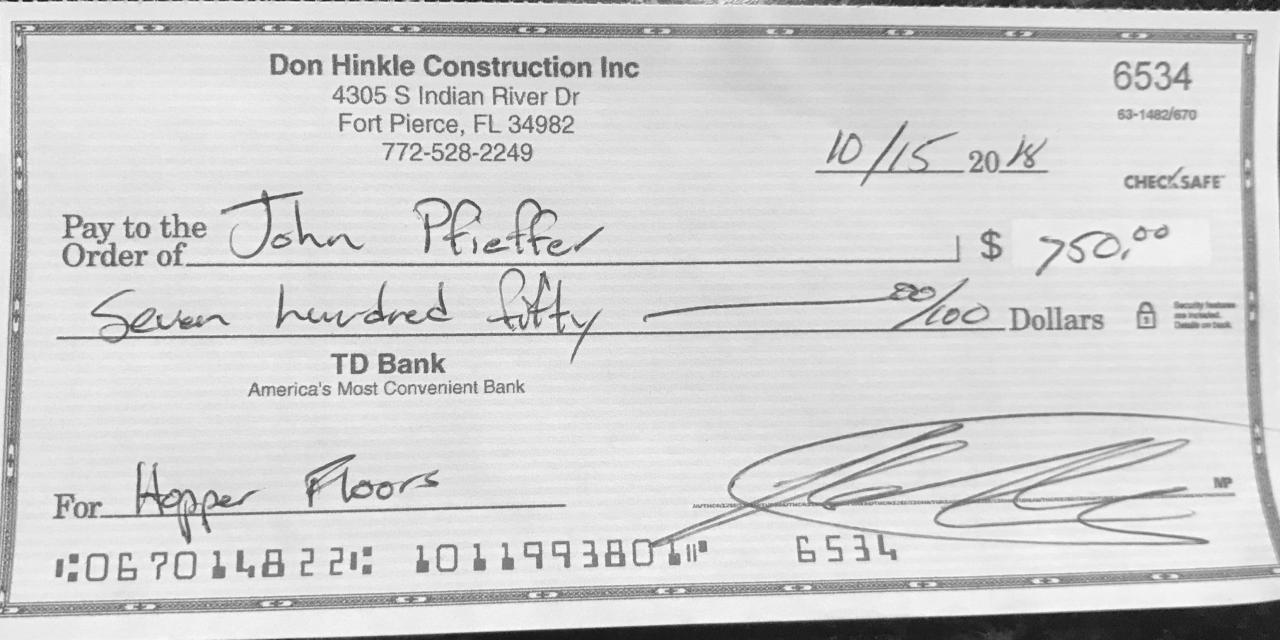 Don Hinkle Construction Inc
4305 S Indian River Dr
Fort Pierce, FL 34982
772-528-2249
6534
63-1482/670
10/15 2018
CHECKSAFE
Pay to the
Order of John Pfieffer $ 750.00
Seven hundred fifty 00/100 Dollars
Security features
are included.
Details on back.
TD Bank
America's Most Convenient Bank
For Hopper Floors
MP
⑆067014822⑆ 1011993801⑈ 6534